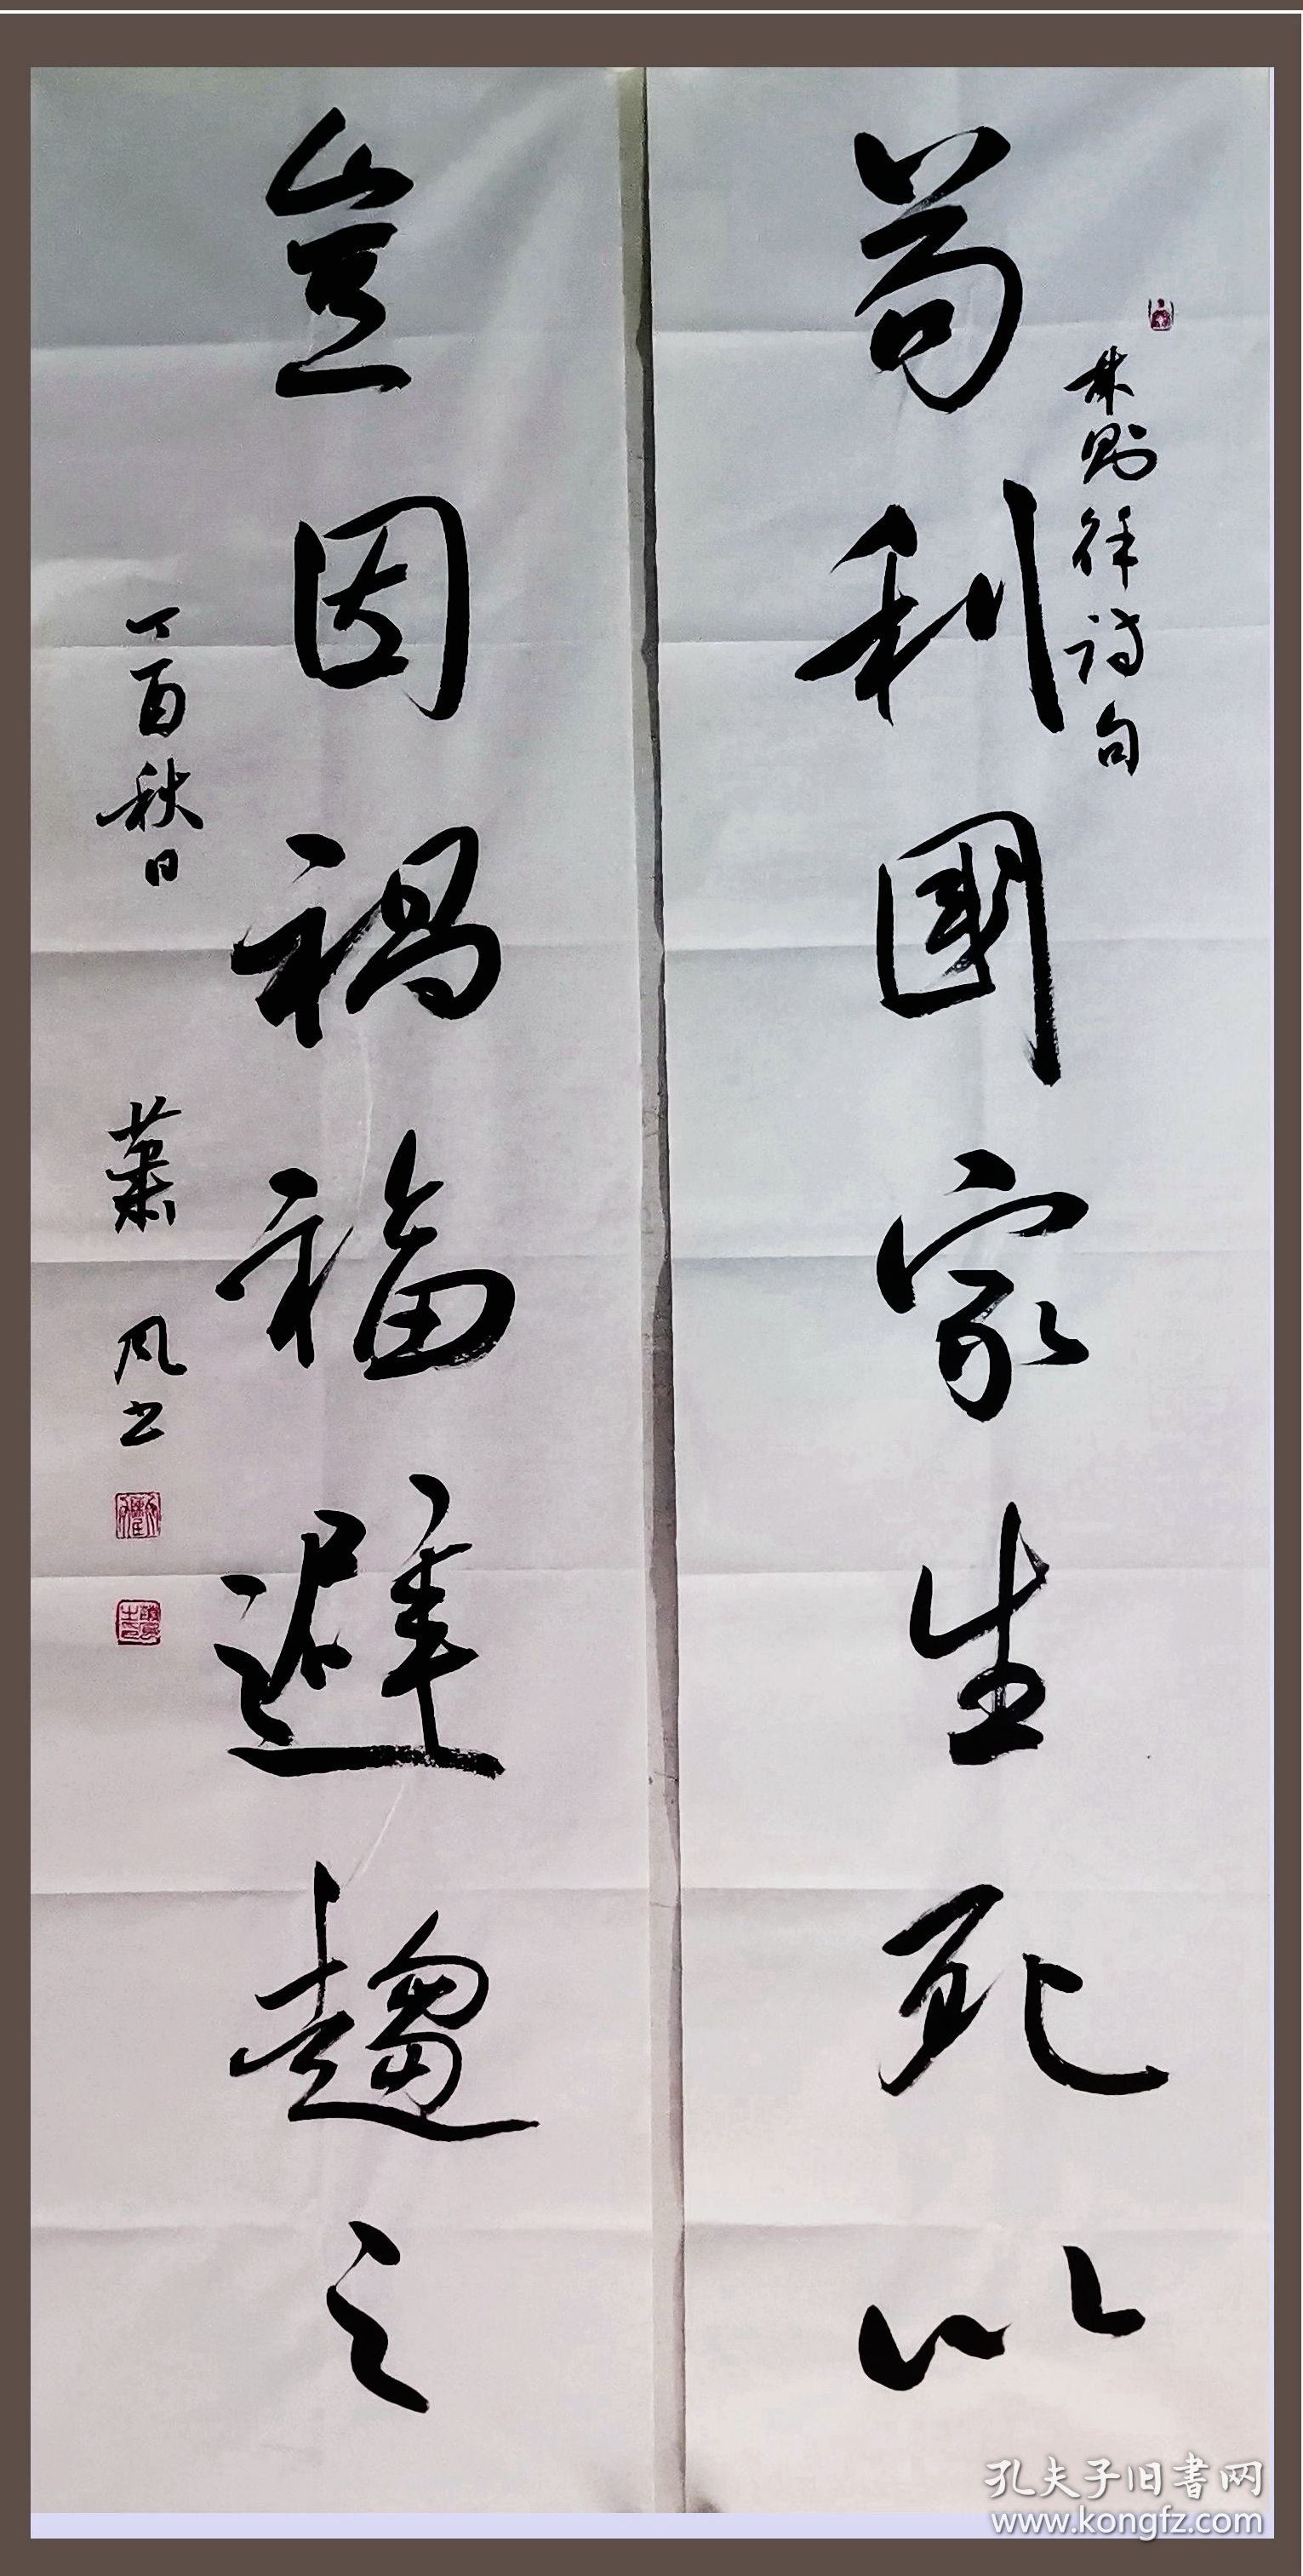 林则徐诗句
苟利國家生死以
豈因禍福避趨之
丁酉秋日 萧风书
孔夫子旧書网
www.kongfz.com